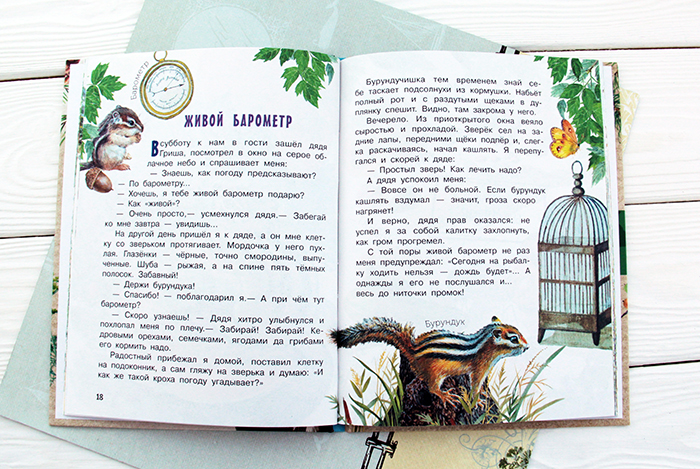 Барометр
ЖИВОЙ БАРОМЕТР
В субботу к нам в гости зашёл дядя
Гриша, посмотрел в окно на серое об-
лачное небо и спрашивает меня:
— Знаешь, как погоду предсказывают?
— По барометру...
— Хочешь, я тебе живой барометр подарю?
— Как «живой»?
— Очень просто,— усмехнулся дядя.— Забегай
ко мне завтра — увидишь...
На другой день пришёл я к дяде, а он мне клетку
со зверьком протягивает. Мордочка у него пух-
лая. Глазёнки — чёрные, точно смородины, выпу-
ченные. Шуба — рыжая, а на спине пять тёмных
полосок. Забавный!
— Держи бурундука!
— Спасибо! — поблагодарил я.— А при чём тут
барометр?
— Скоро узнаешь! — Дядя хитро улыбнулся и
похлопал меня по плечу.— Забирай! Забирай! Ке-
дровыми орехами, семечками, ягодами да грибами
его кормить надо.
Радостный прибежал я домой, поставил клетку
на подоконник, а сам гляжу на зверька и думаю: «И
как же такой кроха погоду угадывает?»
18
Бурундучишка тем временем знай се-
бе таскает подсолнухи из кормушки. Набьёт
полный рот и с раздутыми щеками в ду-
плянку спешит. Видно, там закрома у него.
Вечерело. Из приоткрытого окна веяло
сыростью и прохладой. Зверёк сел на зад-
ние лапы, передними щёки подпёр и, слег-
ка раскачиваясь, начал кашлять. Я перепу-
гался и скорей к дяде:
— Простыл зверь! Как лечить надо?
А дядя успокоил меня:
— Вовсе он не больной. Если бурундук
кашлять вздумал — значит, гроза скоро
нагрянет!
И верно, дядя прав оказался: не
успел я за собой калитку захлопнуть,
как гром прогремел.
С той поры живой барометр не раз
меня предупреждал: «Сегодня на рыбал-
ку ходить нельзя — дождь будет»... А
однажды я его не послушался и...
весь до ниточки промок!
Бурундук